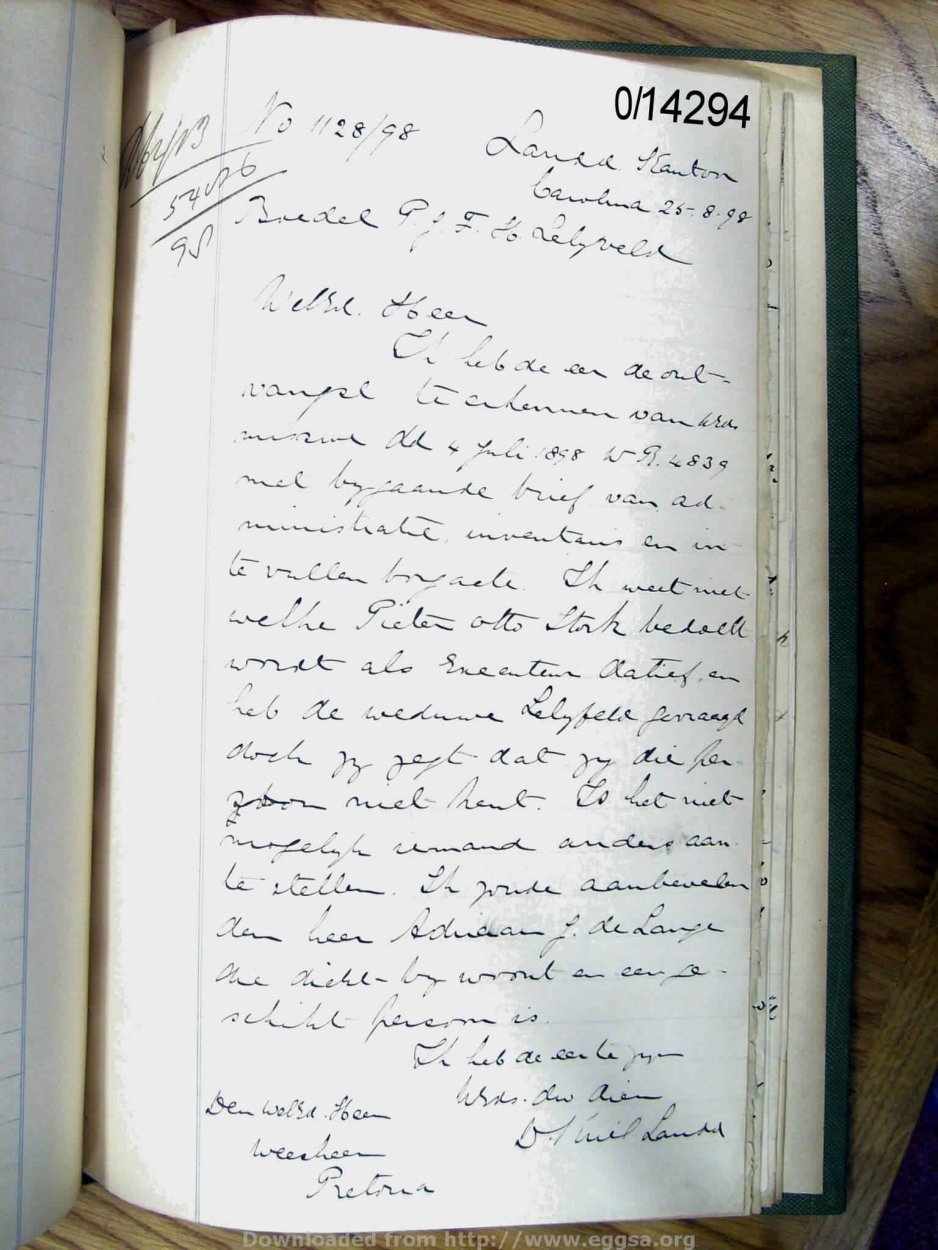 0/14294
No 1128/98
Landd. Kantoor
Carolina 25-8-98
54056
98
Boedel P. J. F. H. Lelyveld
WelEd. Heer
Ik heb de eer de ont-
vangst te erkennen van UEds
missive dd 4 Juli 1898 W R. 4839
met bygaande brief van ad-
ministratie, inventaris en in
te vullen borgacte. Ik weet niet
welke Pieter Otto Stork bedoelt
wordt als Executeur Datief, en
heb de weduwe Lelyfeld gevraagd
doch zy zegt dat zy die per-
zoon niet kent. Is het niet
mogelyk iemand anders aan
te stellen. Ik zoude aanbevelen
den heer Adriaan J. de Lange
die dicht-by woont en een ge-
schikt persoon is.
Ik heb de eer te zyn
UEds. dw dien
Landd
Den WelEd. Heer
Weesheer
Pretoria
Downloaded from http://www.eggsa.org